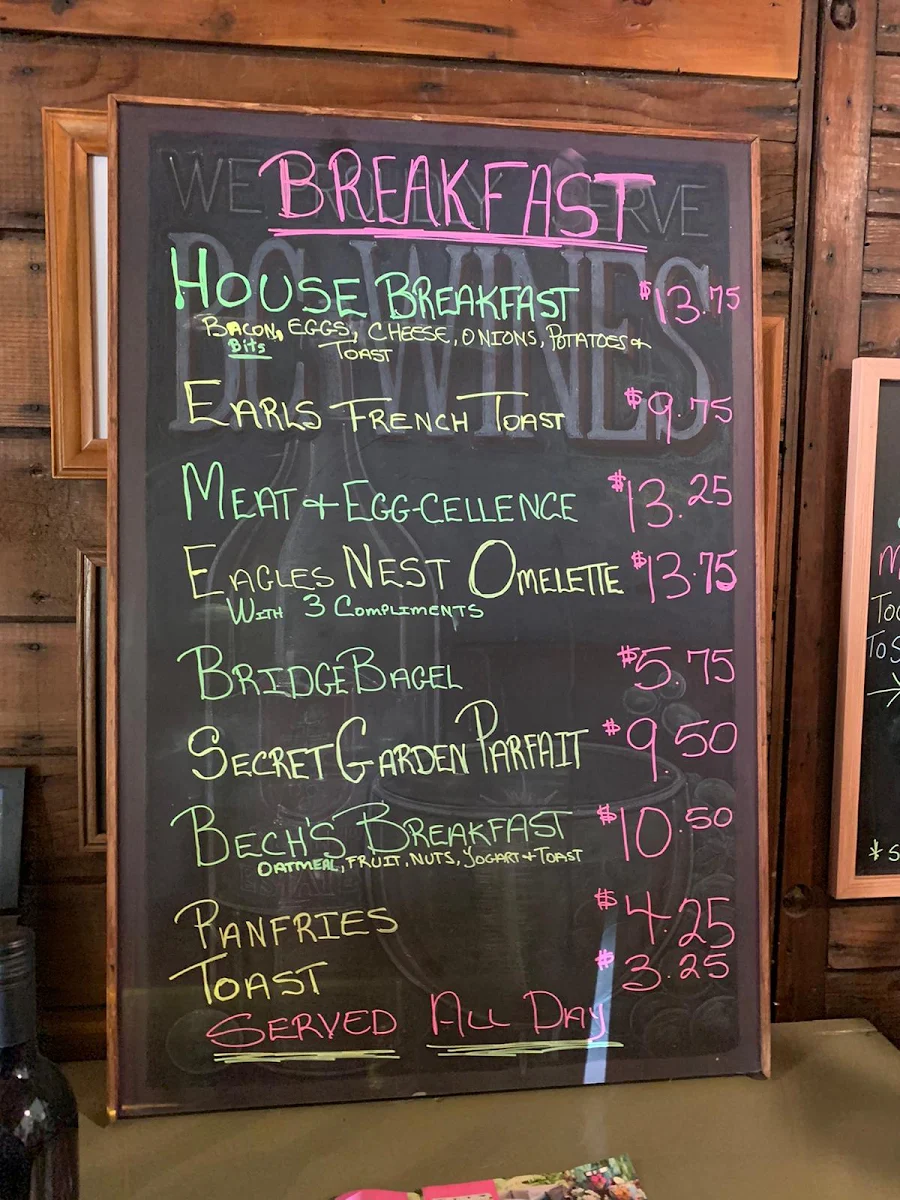 BREAKFAST
WE PROUDLY SERVE
BC WINES
HOUSE BREAKFAST $13.75
BACON, EGGS, CHEESE, ONIONS, POTATOES +
Bits TOAST
EARLS FRENCH TOAST $9.75
MEAT + EGG-CELLENCE $13.25
EAGLES NEST OMELETTE $13.75
WITH 3 COMPLIMENTS
BRIDGE BAGEL $5.75
SECRET GARDEN PARFAIT $9.50
BECH'S BREAKFAST $10.50
OATMEAL, FRUIT, NUTS, YOGART + TOAST
PANFRIES $4.25
TOAST $3.25
SERVED ALL DAY